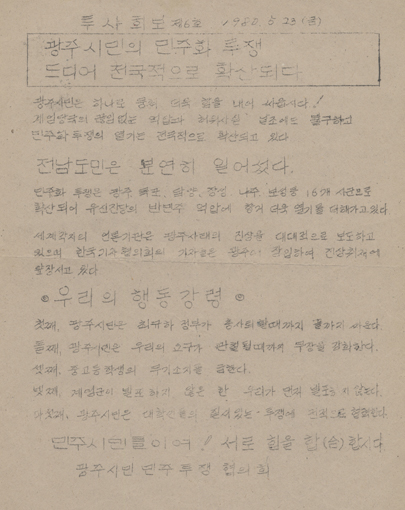 투사회보 제6호 1980. 5. 23 (금)
광주시민의 민주화 투쟁
드디어 전국적으로 확산되다
광주시민은 하나로 더욱 힘을 내어 싸웁시다!
계엄당국의 억압과 에도 불구하고
민주화 투쟁의 열기는 전국적으로 확산되고 있다
전남도민은 분연히 일어섰다.
민주화 투쟁은 광주 목포, 담양, 장성 나주 보성등 16개 시군으로
확산되어 유신잔당의 억압에 항거 더욱 열기를 더해가고 있다
세계각지의 언론기관은 광주사태의 진상을 대대적으로 보도하고
있으며 한국기자협회의 기자들은 광주에 잠입하여 진상취재에
앞장서고 있다
◎ 우리의 행동강령 ◎
첫째, 광주시민은 최규하 정부가 총사퇴할때까지 끝까지 싸운다.
둘째, 광주시민은 우리의 요구가 관철될때까지 무장을 강화한다.
셋째, 중고등학생의 무기소지를 금한다.
넷째, 계엄군이 발포하지 않은 한 우리가 먼저 발포하지 않는다.
다섯째, 광주시민은 대학인들의 투쟁에 협력한다.
민주시민들이여! 서로 힘을 합(合)합시다
광주시민 민주투쟁 협의회